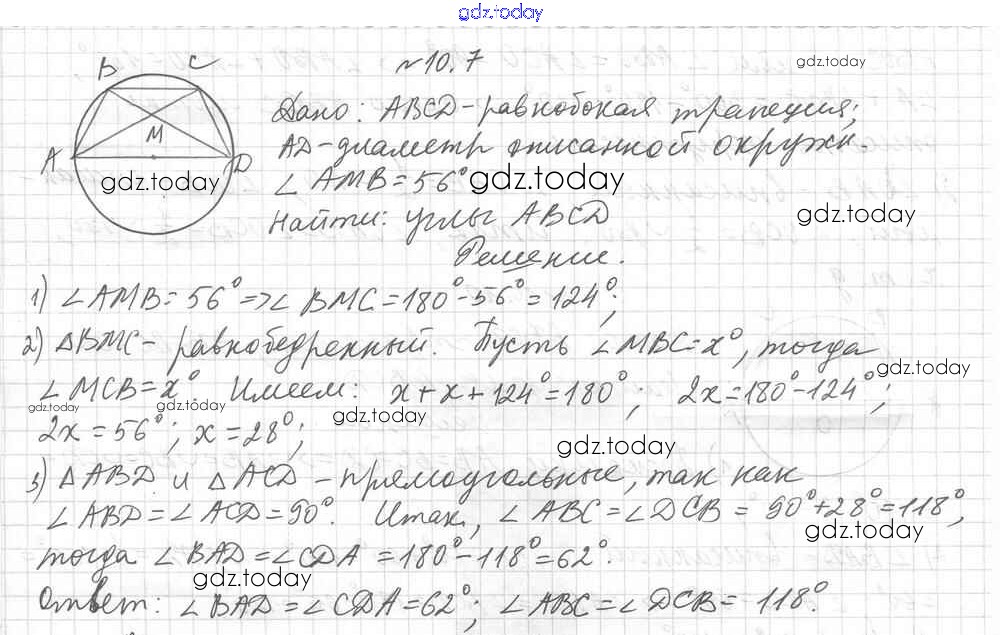 gdz.today
№10.7
gdz.today
B C
Дано: ABCD-равнобокая трапеция;
M
AD-диаметр описанной окружн.
A D
gdz.today
∠AMB=56° gdz.today
Найти: углы ABCD
gdz.today
Решение.
1) ∠AMB=56°=>∠BMC=180°-56°=124°;
2) △BMC- равнобедренный. Пусть ∠MBC=x°, тогда
gdz.today
∠MCB=x° Имеем: x+x+124°=180°; 2x=180°-124°;
gdz.today gdz.today gdz.today
2x=56°; x=28°;
gdz.today
3) △ABD и △ACD-прямоугольные, так как
∠ABD=∠ACD=90°. Итак, ∠ABC=∠DCB=90°+28°=118°,
gdz.today
тогда ∠BAD=∠CDA=180°-118°=62°.
gdz.today
Ответ: ∠BAD=∠CDA=62°; ∠ABC=∠DCB=118°.